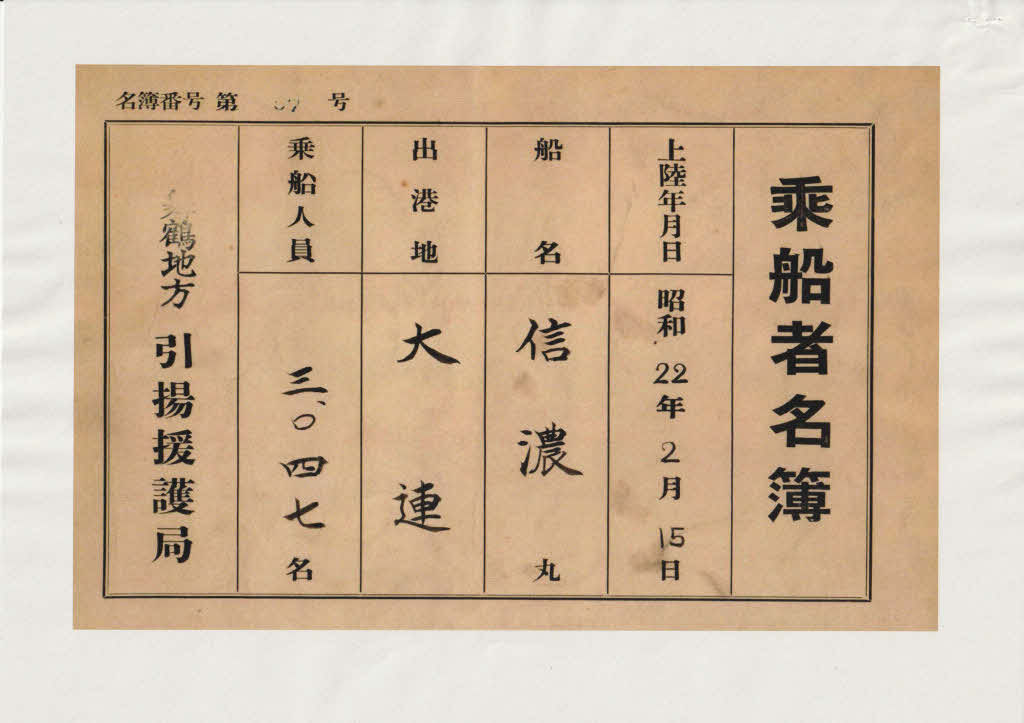 名簿番号 第 号
乗船者名簿
上陸年月日
昭和22年2月15日
船名
信濃丸
出港地
大連
乗船人員
三、〇四七名
鶴地方引揚援護局